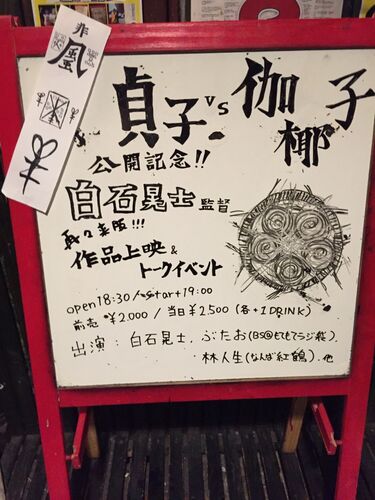 貞子vs伽椰子
公開記念!!
白石晃士 監督
来阪!!!
作品上映&
トークイベント
open18:30/start19:00
前売 ¥2,000 / 当日¥2,500 (各+1DRINK)
出演: 白石晃士, ぶたお
林人生(なんば紅鶴), 他